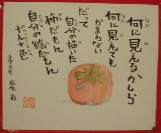 何に見えるかしら
何に見えても
かまわない
だって
自分の描いた
柿だもん
自分の絵だもん
十人十色